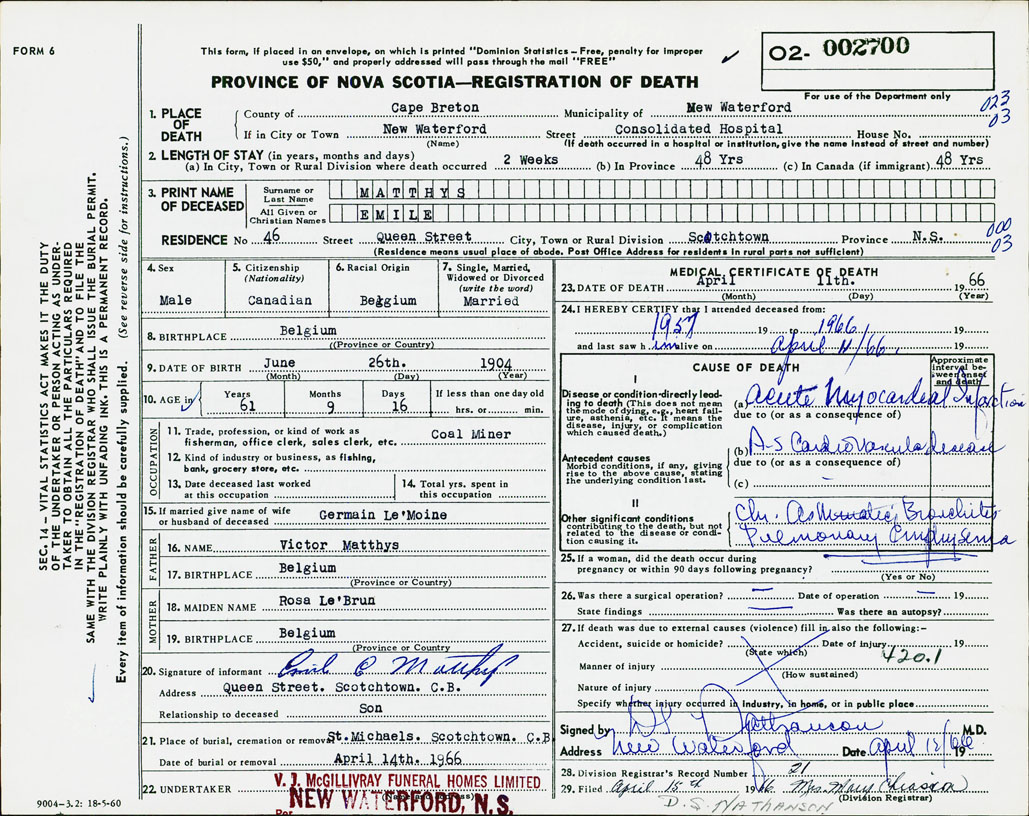 FORM 6
This form, if placed in an envelope, on which is printed "Dominion Statistics – Free, penalty for improper
use $50," and properly addressed will pass through the mail "FREE"
✓
O2- 002700
For use of the Department only
PROVINCE OF NOVA SCOTIA—REGISTRATION OF DEATH
023
03
1. PLACE OF DEATH
County of Cape Breton Municipality of New Waterford
If in City or Town New Waterford Street Consolidated Hospital House No.
(Name) (If death occurred in a hospital or institution, give the name instead of street and number)
2. LENGTH OF STAY (in years, months and days)
(a) In City, Town or Rural Division where death occurred 2 Weeks (b) In Province 48 Yrs (c) In Canada (if immigrant) 48 Yrs
3. PRINT NAME OF DECEASED
Surname or Last Name MATTHYS
All Given or Christian Names EMILE
000
03
RESIDENCE No 46 Street Queen Street City, Town or Rural Division Scotchtown Province N.S.
(Residence means usual place of abode. Post Office Address for residents in rural parts not sufficient)
4. Sex
Male
5. Citizenship
(Nationality)
Canadian
6. Racial Origin
Belgium
7. Single, Married,
Widowed or Divorced
(write the word)
Married
8. BIRTHPLACE Belgium
(Province or Country)
9. DATE OF BIRTH June 26th. 1904
(Month) (Day) (Year)
10. AGE in
Years Months Days If less than one day old
61 9 16 hrs. or min.
OCCUPATION
11. Trade, profession, or kind of work as
fisherman, office clerk, sales clerk, etc. Coal Miner
12. Kind of industry or business, as fishing,
bank, grocery store, etc.
13. Date deceased last worked
at this occupation
14. Total yrs. spent in
this occupation
15. If married give name of wife
or husband of deceased Germain Le'Moine
FATHER
16. NAME Victor Matthys
17. BIRTHPLACE Belgium
(Province or Country)
MOTHER
18. MAIDEN NAME Rosa Le'Brun
19. BIRTHPLACE Belgium
(Province or Country)
20. Signature of informant Emil C Matthys
Address Queen Street. Scotchtown. C.B.
Relationship to deceased Son
21. Place of burial, cremation or removal St.Michaels. Scotchtown. C.B
Date of burial or removal April 14th. 1966
22. UNDERTAKER V. J. McGILLIVRAY FUNERAL HOMES LIMITED
NEW WATERFORD, N.S.
Per
9004-3.2: 18-5-60
MEDICAL CERTIFICATE OF DEATH
23. DATE OF DEATH April 11th. 19 66
(Month) (Day) (Year)
24. I HEREBY CERTIFY that I attended deceased from:
1957 19 to 1966 19
and last saw him alive on April 11/66. 19
CAUSE OF DEATH
Approximate
interval be-
tween onset
and death
I
Disease or condition directly lead-
ing to death (This does not mean
the mode of dying, e.g., heart fail-
ure, asthenia, etc. It means the
disease, injury, or complication
which caused death.)
(a) Acute Myocardial Infarction
due to (or as a consequence of)
(b) A-S Cardiovascular disease
Antecedent causes
Morbid conditions, if any, giving
rise to the above cause, stating
the underlying condition last.
due to (or as a consequence of)
(c) –
II
Other significant conditions
contributing to the death, but not
related to the disease or condi-
tion causing it.
Chr. Asthmatic Bronchitis
Pulmonary Emphysema
25. If a woman, did the death occur during
pregnancy or within 90 days following pregnancy?
(Yes or No)
26. Was there a surgical operation? — Date of operation — 19
State findings — Was there an autopsy?
27. If death was due to external causes (violence) fill in also the following:–
Accident, suicide or homicide? Date of injury 19
(State which)
420.1
Manner of injury
(How sustained)
Nature of injury
Specify whether injury occurred in industry, in home, or in public place
Signed by D S Nathanson M.D.
Address New Waterford Date April 12/66 19
28. Division Registrar's Record Number 21
29. Filed April 15th 1966 Mrs. Mary Chiasson
(Division Registrar)
D. S. NATHANSON
SEC. 14 – VITAL STATISTICS ACT MAKES IT THE DUTY
OF THE UNDERTAKER OR PERSON ACTING AS UNDER-
TAKER TO OBTAIN ALL THE PARTICULARS REQUIRED
IN THE "REGISTRATION OF DEATH" AND TO FILE THE
SAME WITH THE DIVISION REGISTRAR WHO SHALL ISSUE THE BURIAL PERMIT.
WRITE PLAINLY WITH UNFADING INK. THIS IS A PERMANENT RECORD.
Every item of information should be carefully supplied. (See reverse side for instructions.)